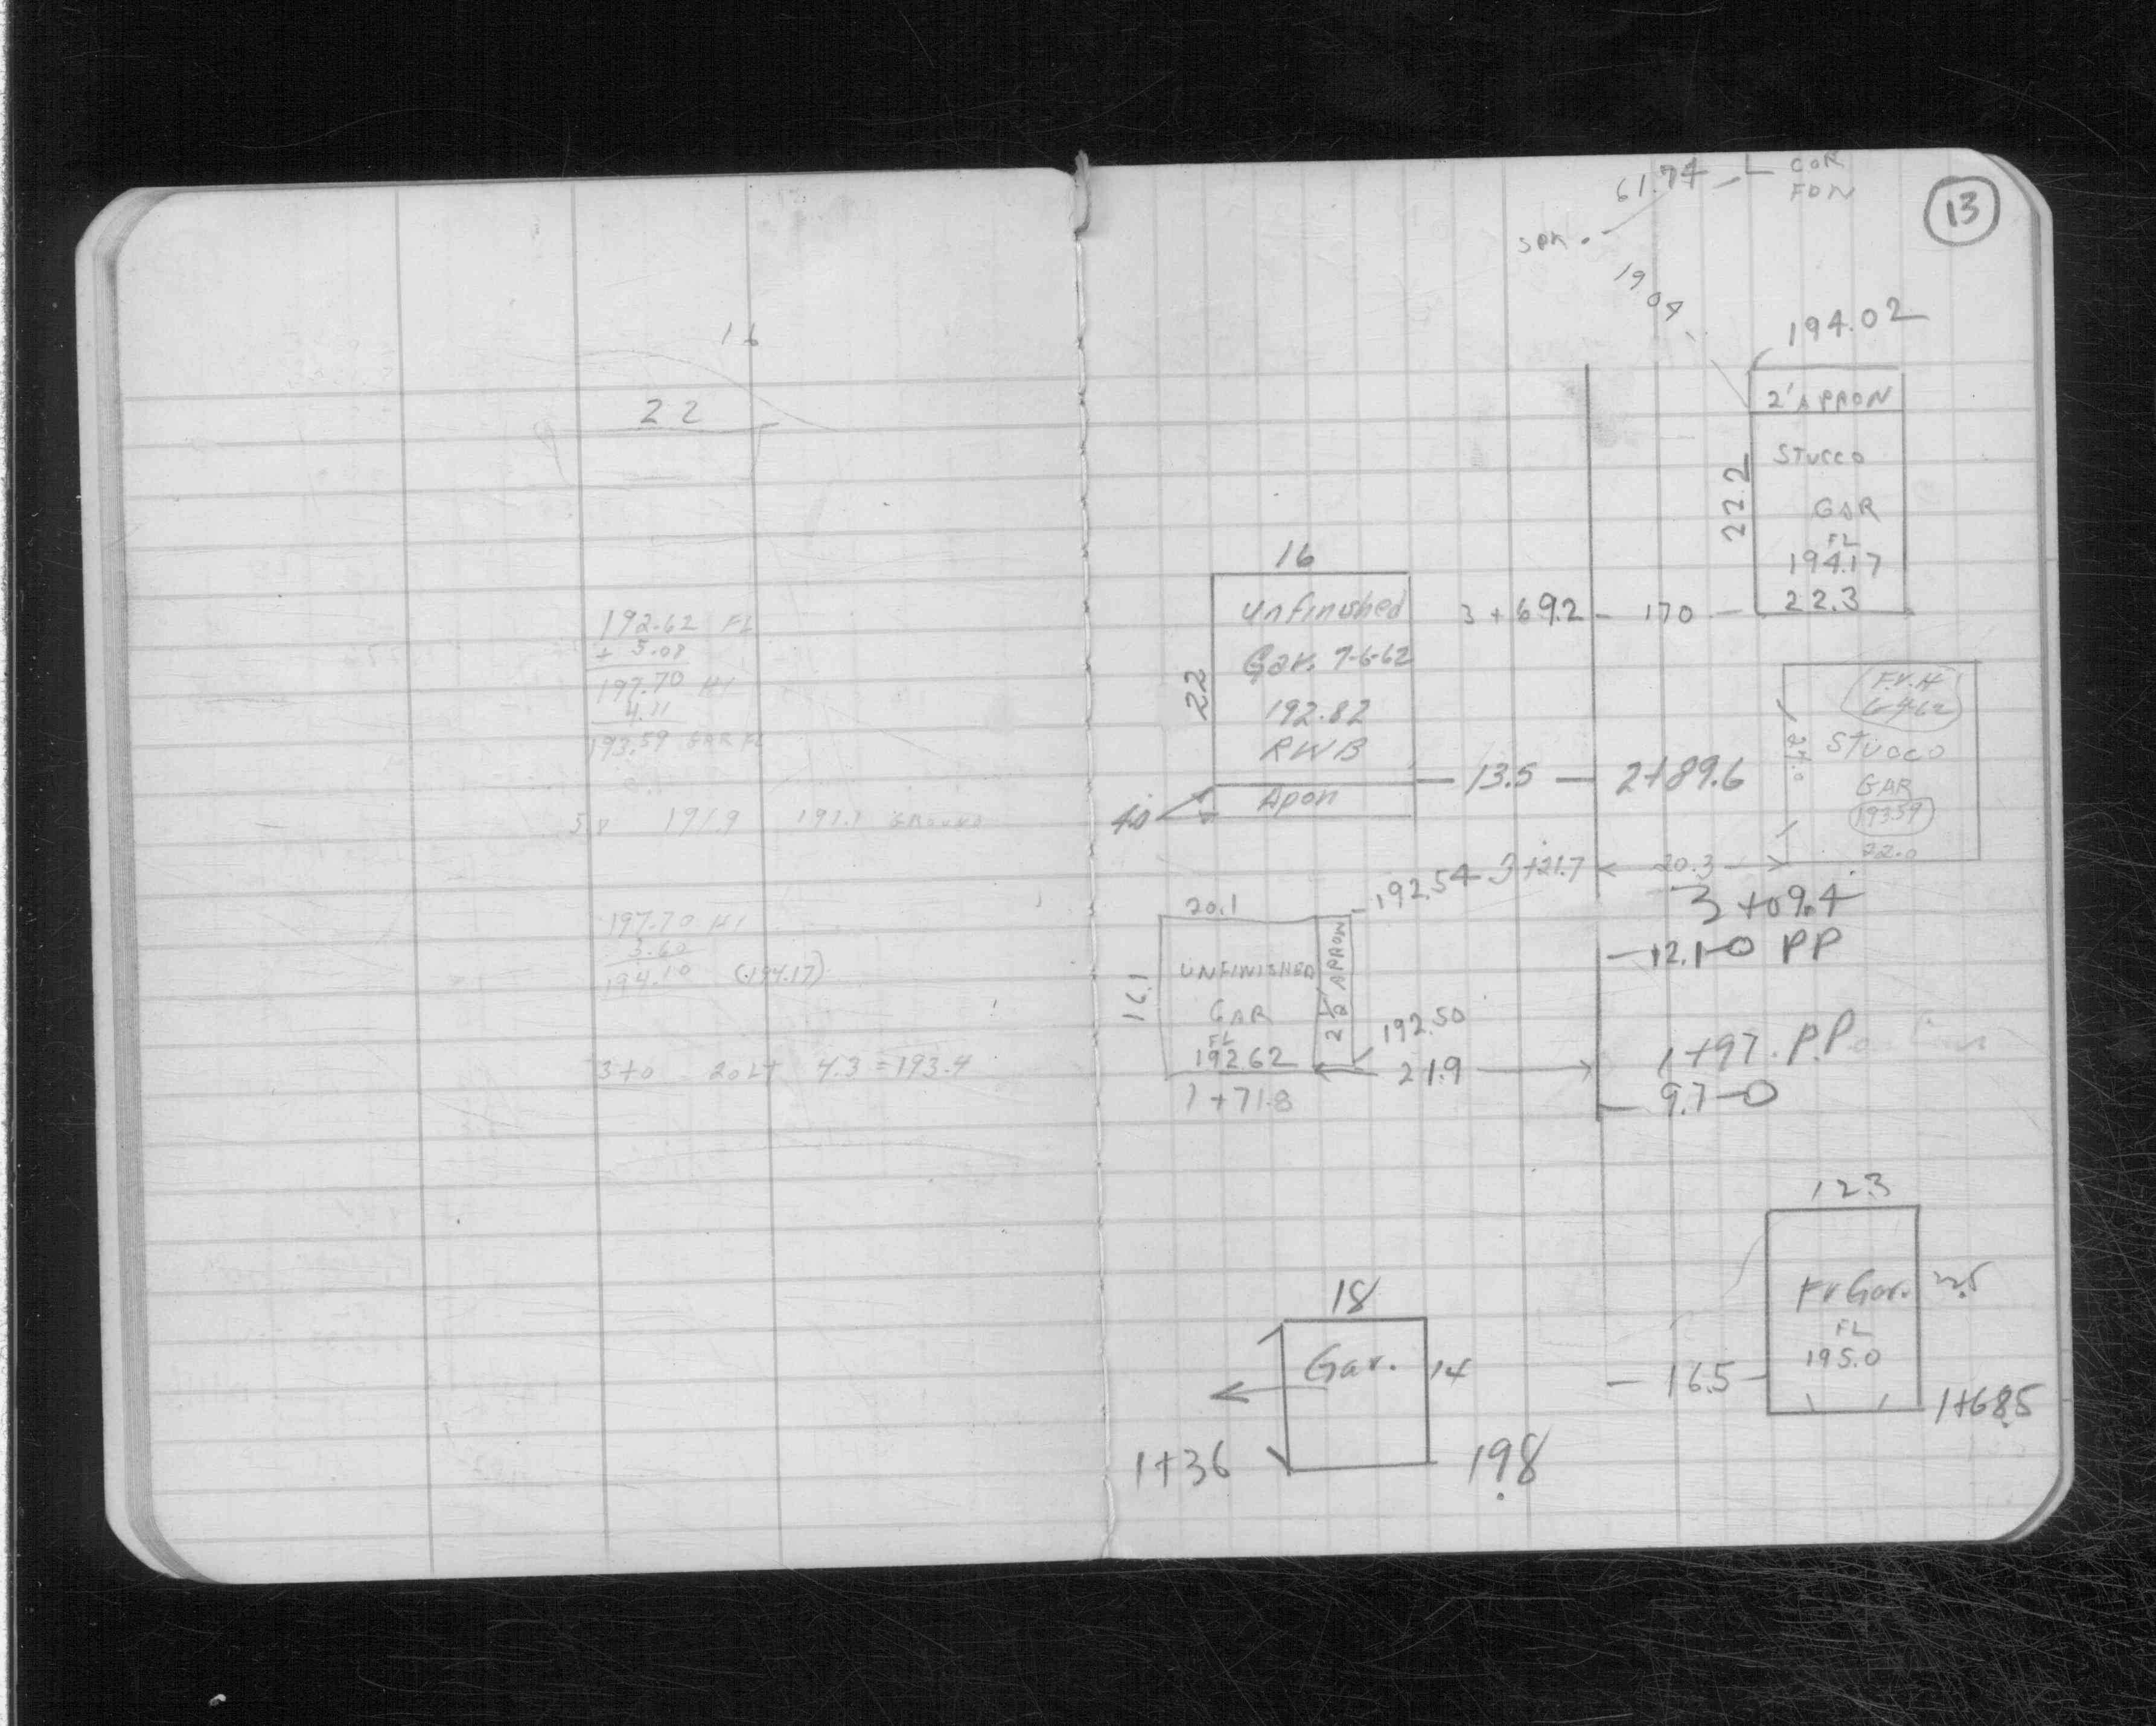 16
22
192.62 FL
+ 5.08
197.70 HI
4.11
193.59 GAR FL
5.8 191.9 191.9 GROUND
197.70 HI
3.60
194.10 (194.17)
3+0 20 LT 4.3 = 193.4
13
61.74
COR
FDN
SPK
19.04
194.02
2' APRON
STUCCO
GAR
FL
194.17
22.3
22.2
3+69.2 - 170 -
16
unfinished
Gar. 7-6-62
192.82
RWB
Apon
22
4.0
- 13.5 - 2+89.6
F.V.H
STUCCO
GAR
193.59
22.0
3+21.7
20.3
192.54
3+09.4
12.1-O PP
20.1
UNFINISHED
GAR
FL
192.62
16.1
2 1/2' APRON
192.50
21.9
1+71.8
1+97. P.P.
9.7-O
12.3
Fr Gar.
FL
195.0
16.5
1+68.5
18
Gar.
14
1+36
19.8